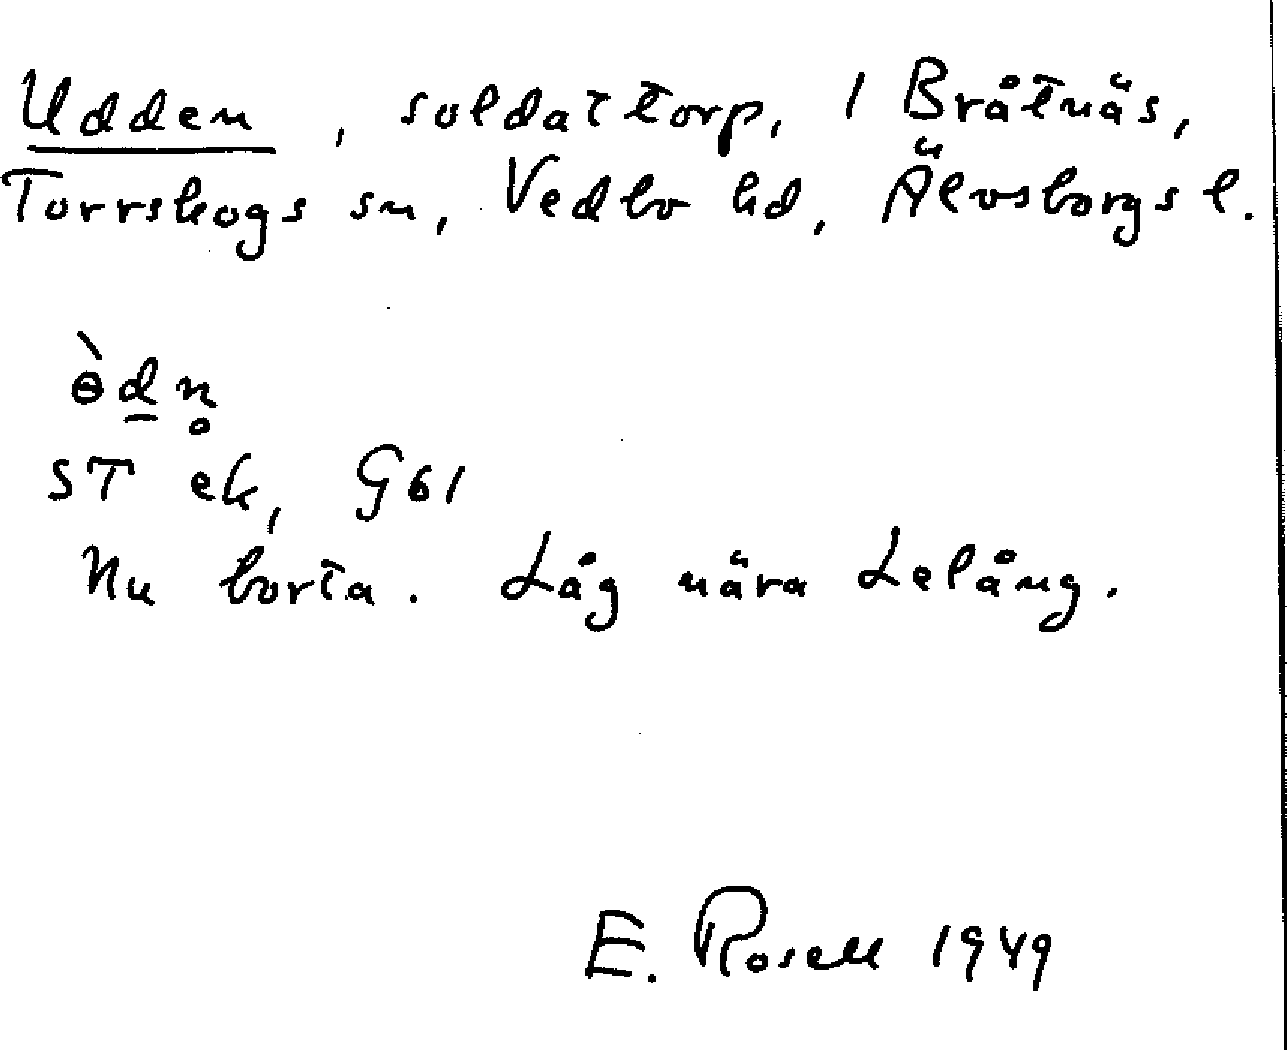 Udden, soldattorp, 1 Bråtnäs,
Torrskogs sn, Vedbo hd, Älvsborgs l.
ɵ̀d̲n̥
ST ek, G61
Nu borta. Låg nära Lelång.
E. Rosell 1949